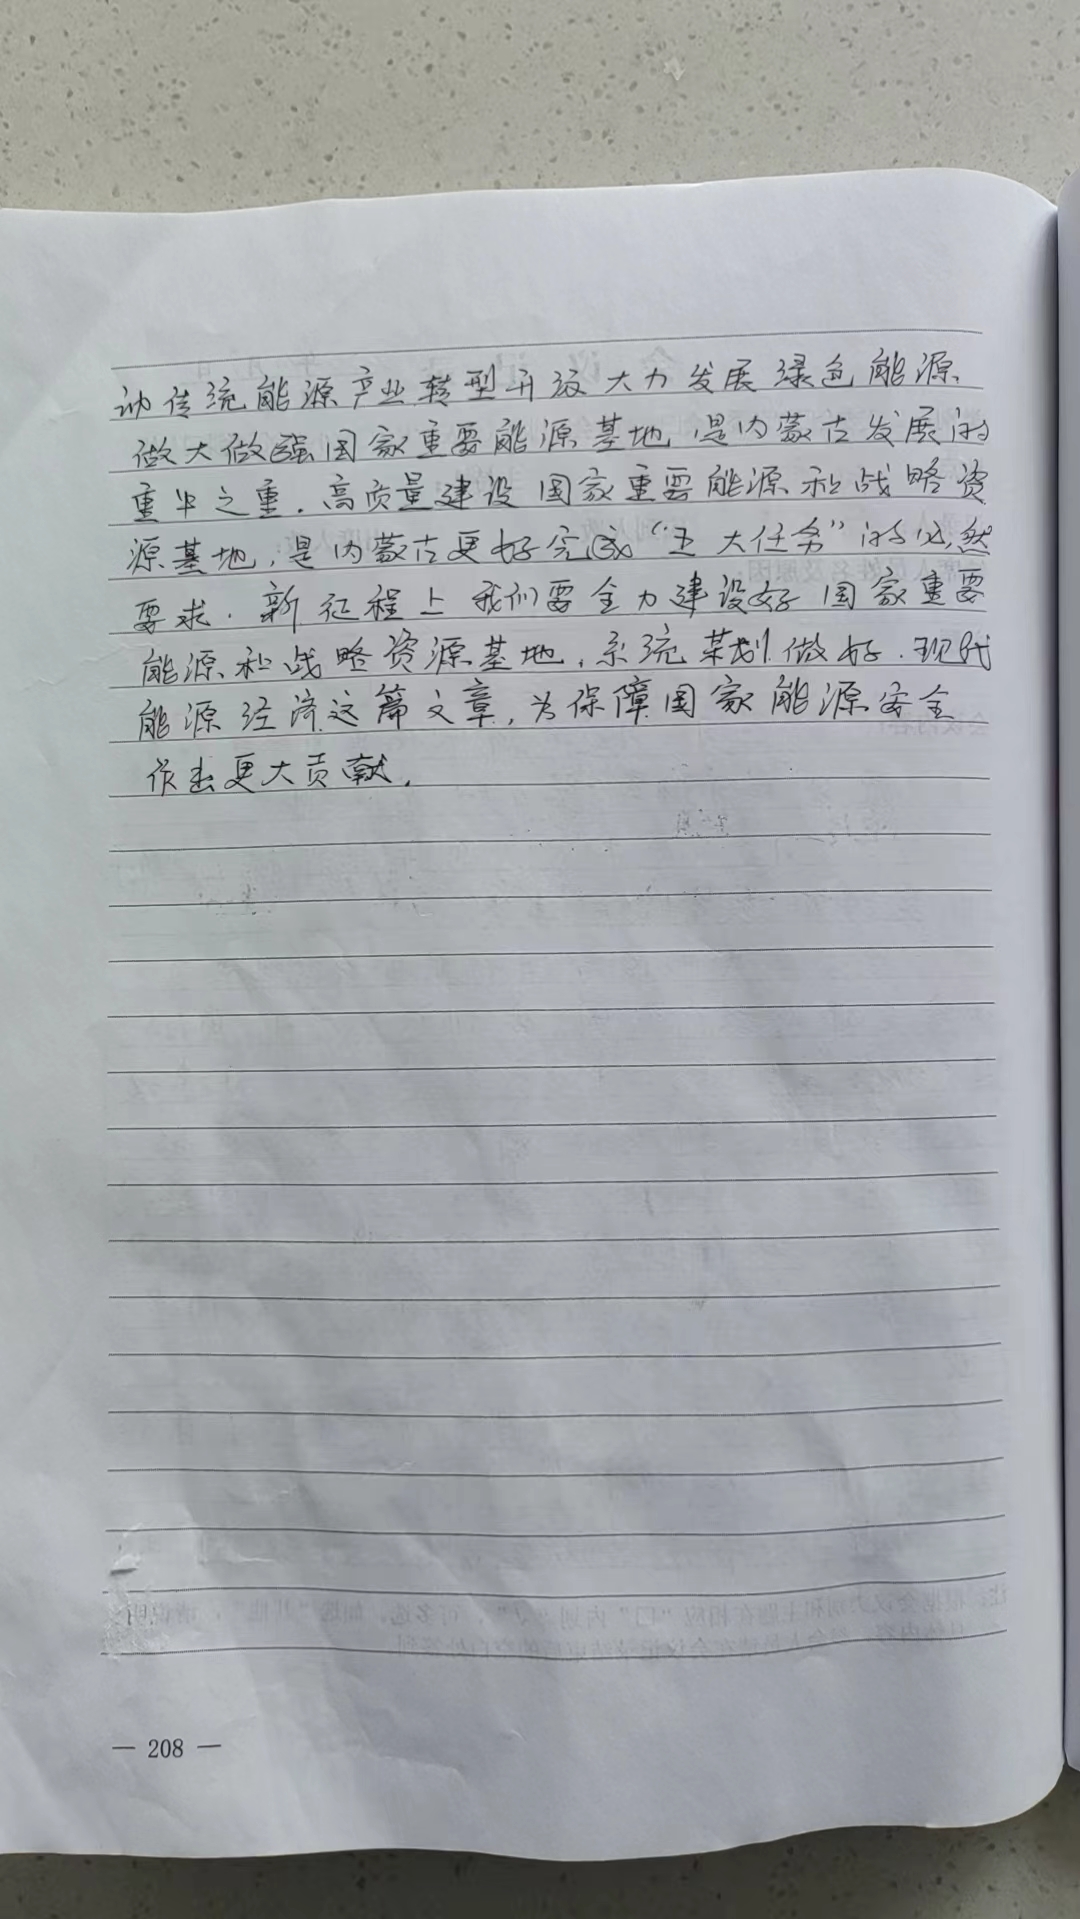 动传统能源产业转型升级大力发展绿色能源、
做大做强国家重要能源基地,是内蒙古发展的
重中之重.高质量建设国家重要能源和战略资
源基地,是内蒙古更好完成“五大任务”的必然
要求.新征程上我们要全力建设好国家重要
能源和战略资源基地,系统谋划.做好.现代
能源经济这篇文章,为保障国家能源安全
作出更大贡献.
— 208 —